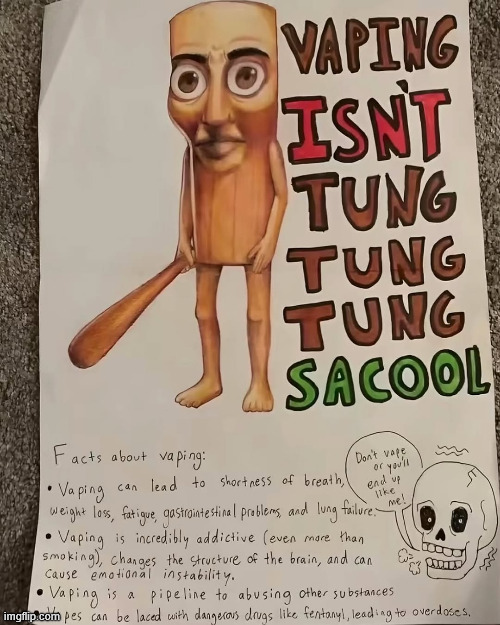 VAPING
ISN'T
TUNG
TUNG
TUNG
SACOOL
Facts about vaping:
• Vaping can lead to shortness of breath,
weight loss, fatigue, gastrointestinal problems, and lung failure.
• Vaping is incredibly addictive (even more than
smoking), changes the structure of the brain, and can
cause emotional instability.
• Vaping is a pipeline to abusing other substances
pes can be laced with dangerous drugs like fentanyl, leading to overdoses.
Don't vape
or you'll
end up
like
me!
imgflip.com